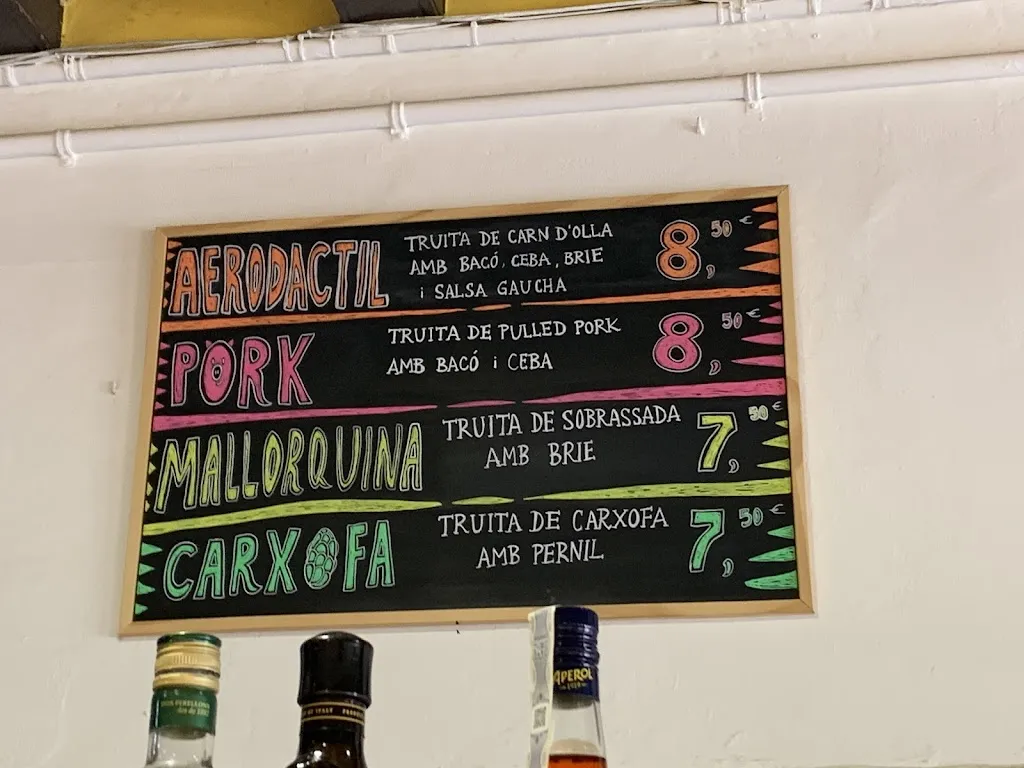 AERODACTIL
TRUITA DE CARN D'OLLA
AMB BACÓ, CEBA, BRIE
i SALSA GAUCHA
8,50€
PORK
TRUITA DE PULLED PORK
AMB BACÓ i CEBA
8,50€
MALLORQUINA
TRUITA DE SOBRASSADA
AMB BRIE
7,50€
CARXOFA
TRUITA DE CARXOFA
AMB PERNIL
7,50€
APEROL